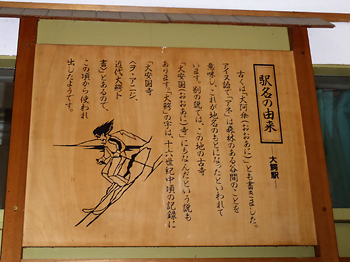 駅名の由来
―大鰐駅―
古くは「大阿弥(おおあに)」とも書きました。
アイヌ語で「アネ」は森林のある谷間のことを
意味し、これが地名のもとになったといわれて
います。別の説では、この地の古寺
「大安国(おおあに)寺」にちなんだという説も
あります。「大鰐」の字は、十六世紀中頃の記録に
「大安国寺
ヘヲ・アニニシ、
近代大鰐ト
書」とあるので、
この頃から使われ
出したようです。